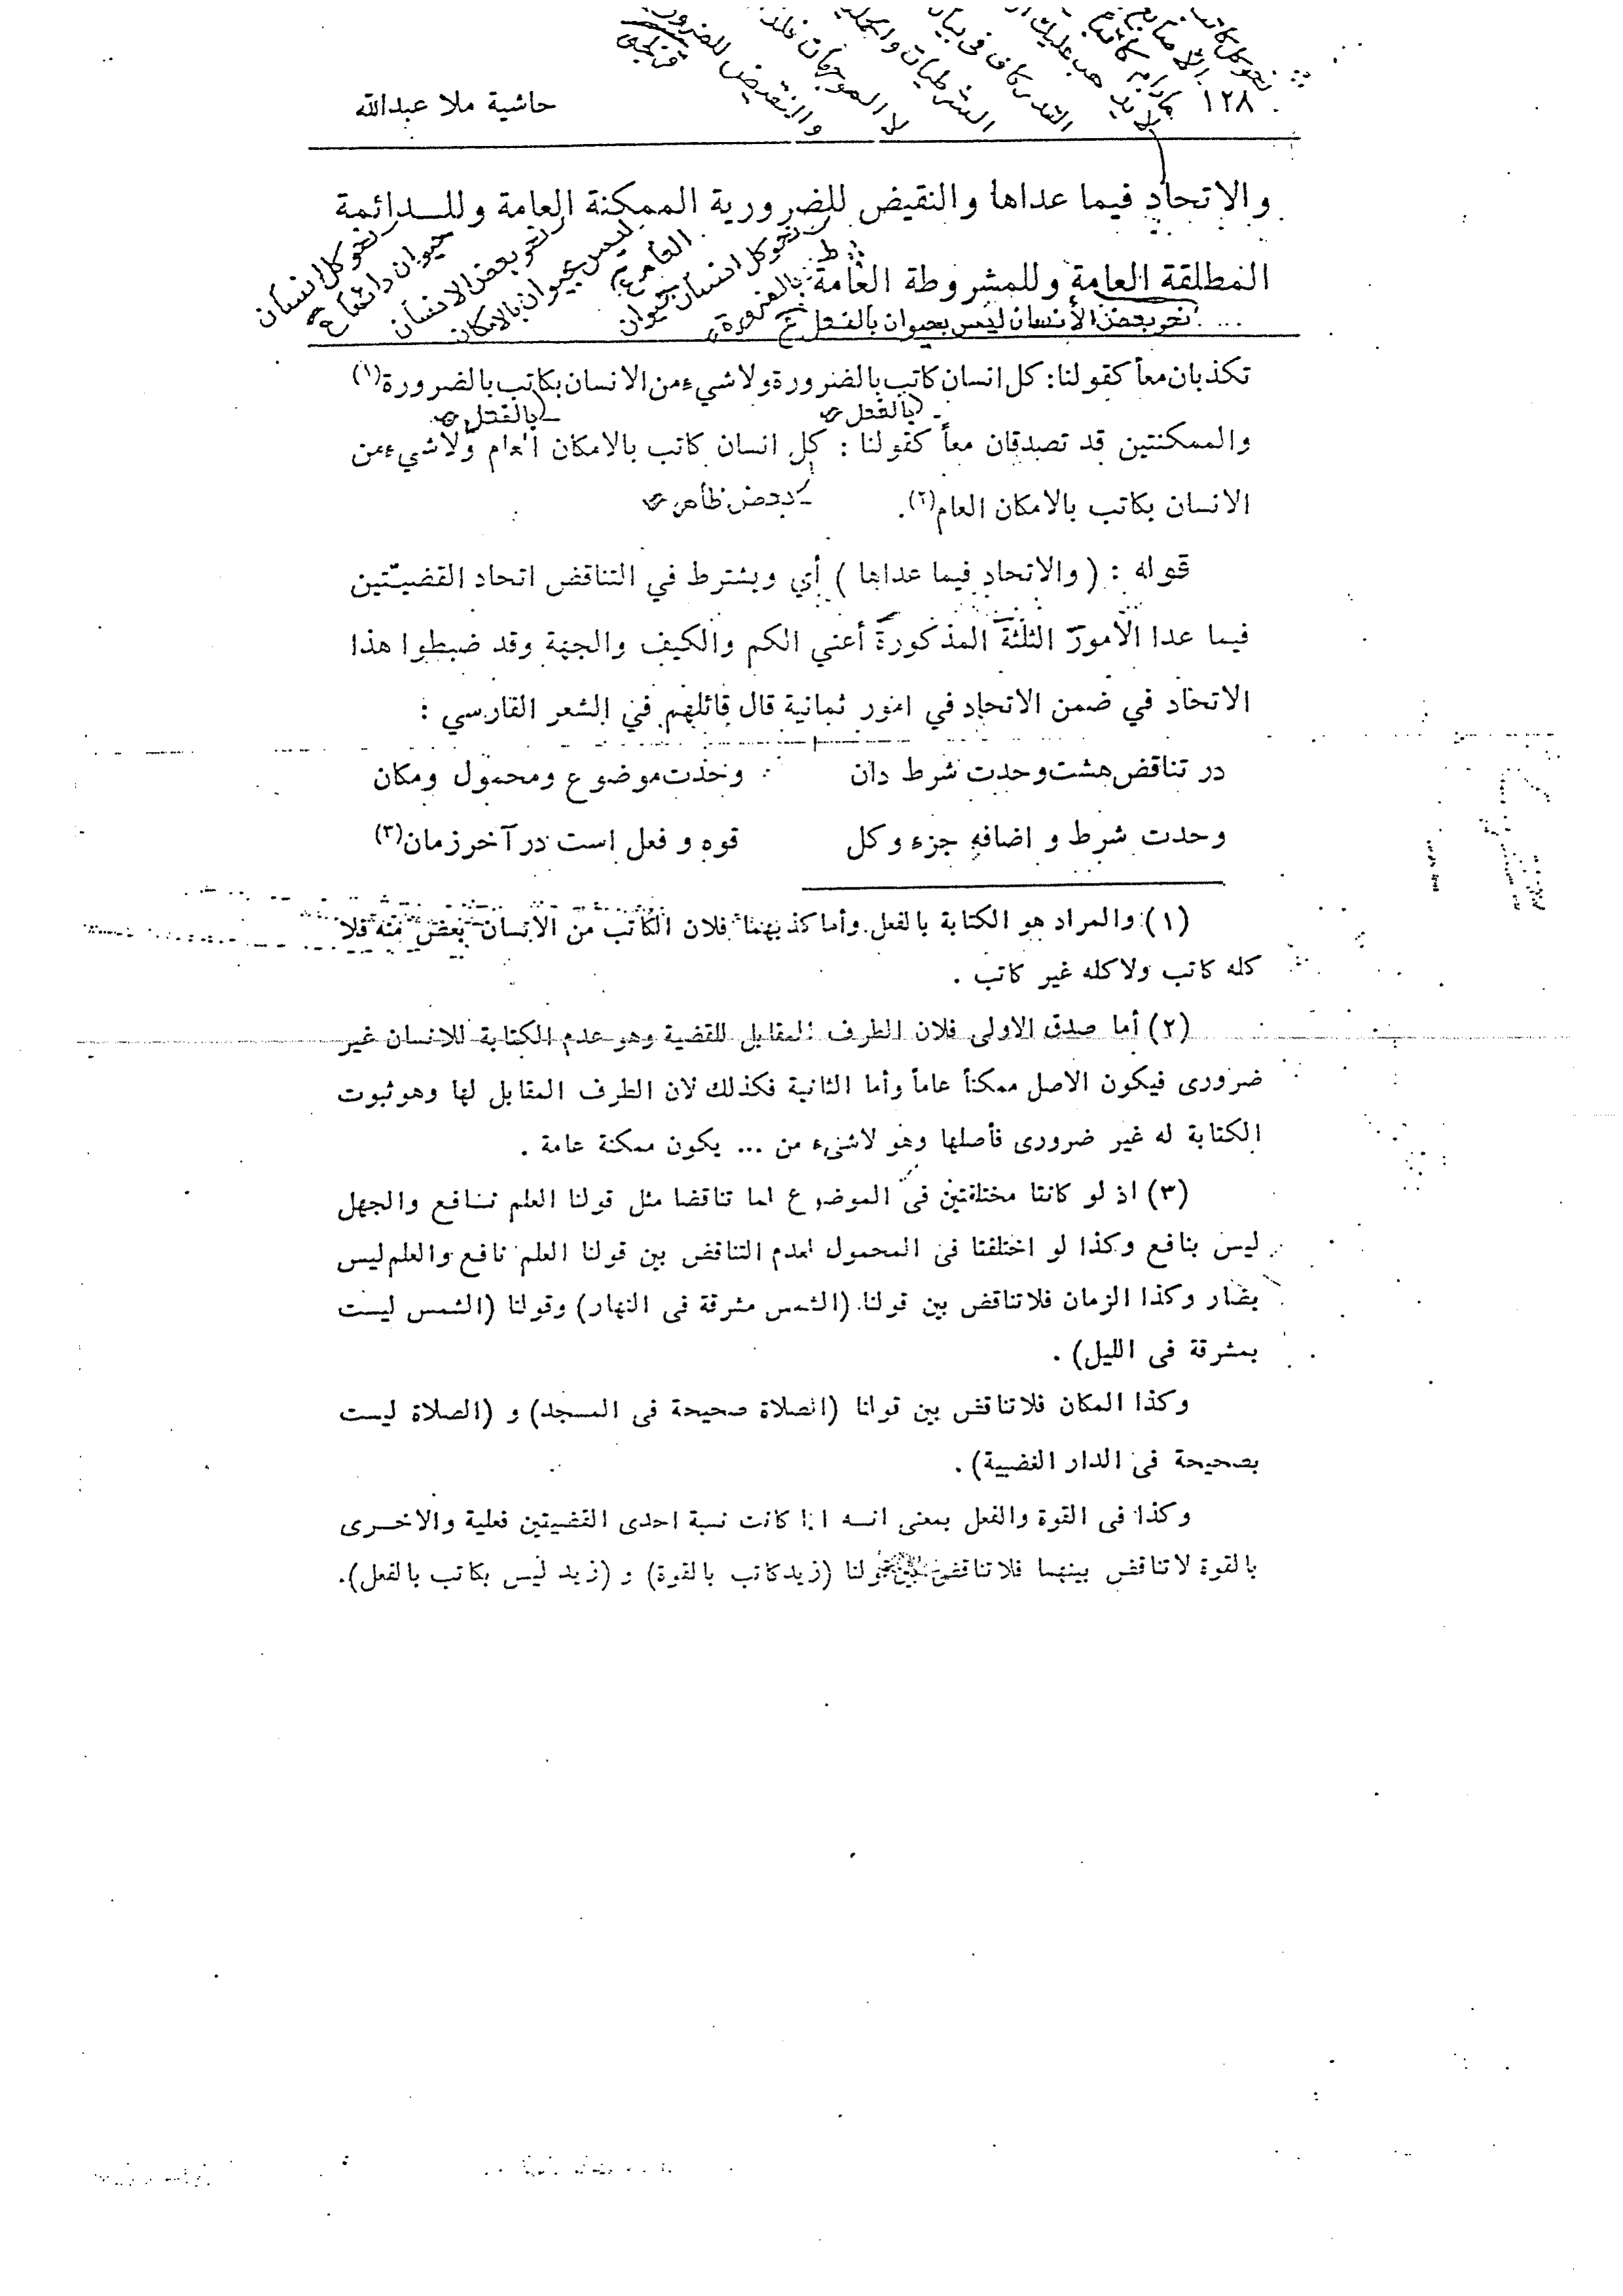 ١٢٨
حاشية ملا عبدالله
والاتحاد فيما عداها والنقيض للضرورية الممكنة العامة وللـدائمة
نحو كل انسان
حيوان دائماً
نحو بعض الانسان
ليس بحيوان بالامكان
العام
نحو كل انسان حيوان
بالضرورة
المطلقة العامة وللمشروطة العامة
نحو بعض الأنسان ليس بحيوان بالفعل
تكذبان معاً كقولنا: كل انسان كاتب بالضرورة ولاشيء من الانسان بكاتب بالضرورة(١)
بالفعل
بالفعل
والممكنتين قد تصدقان معاً كقولنا : كل انسان كاتب بالامكان العام ولاشيء من
الانسان بكاتب بالامكان العام(٢).
قوله : ( والاتحاد فيما عداها ) أي ويشترط في التناقض اتحاد القضيّتين
فيما عدا الامور الثلثة المذكورة أعني الكم والكيف والجهة وقد ضبطوا هذا
الاتحاد في ضمن الاتحاد في امور ثمانية قال قائلهم في الشعر الفارسي :
در تناقض هشت وحدت شرط دان وحدت موضوع ومحمول ومكان
وحدت شرط و اضافه جزء وكل قوه و فعل است در آخر زمان(٣)
(١) والمراد هو الكتابة بالفعل وأما كذبهما فلان الكاتب من الانسان بعض منه فلا
كله كاتب ولاكله غير كاتب .
(٢) أما صدق الاولى فلان الطرف المقابل للقضية وهو عدم الكتابة للانسان غير
ضرورى فيكون الاصل ممكناً عاماً وأما الثانية فكذلك لان الطرف المقابل لها وهو ثبوت
الكتابة له غير ضرورى فأصلها وهو لاشىء من ... يكون ممكنة عامة .
(٣) اذ لو كانتا مختلفتين فى الموضوع لما تناقضا مثل قولنا العلم نـافع والجهل
ليس بنافع وكذا لو اختلفتا فى المحمول لعدم التناقض بين قولنا العلم نافع والعلم ليس
بضار وكذا الزمان فلاتناقض بين قولنا (الشمس مشرقة فى النهار) وقولنا (الشمس ليست
بمشرقة فى الليل) .
وكذا المكان فلاتناقض بين قولنا (الصلاة صحيحة فى المسجد) و (الصلاة ليست
بصحيحة فى الدار الغصبية) .
وكذا فى القوة والفعل بمعنى انـه اذا كانت نسبة احدى القضيتين فعلية والاخـرى
بالقوة لاتناقض بينهما فلاتناقض بين قولنا (زيد كاتب بالقوة) و (زيد ليس بكاتب بالفعل).